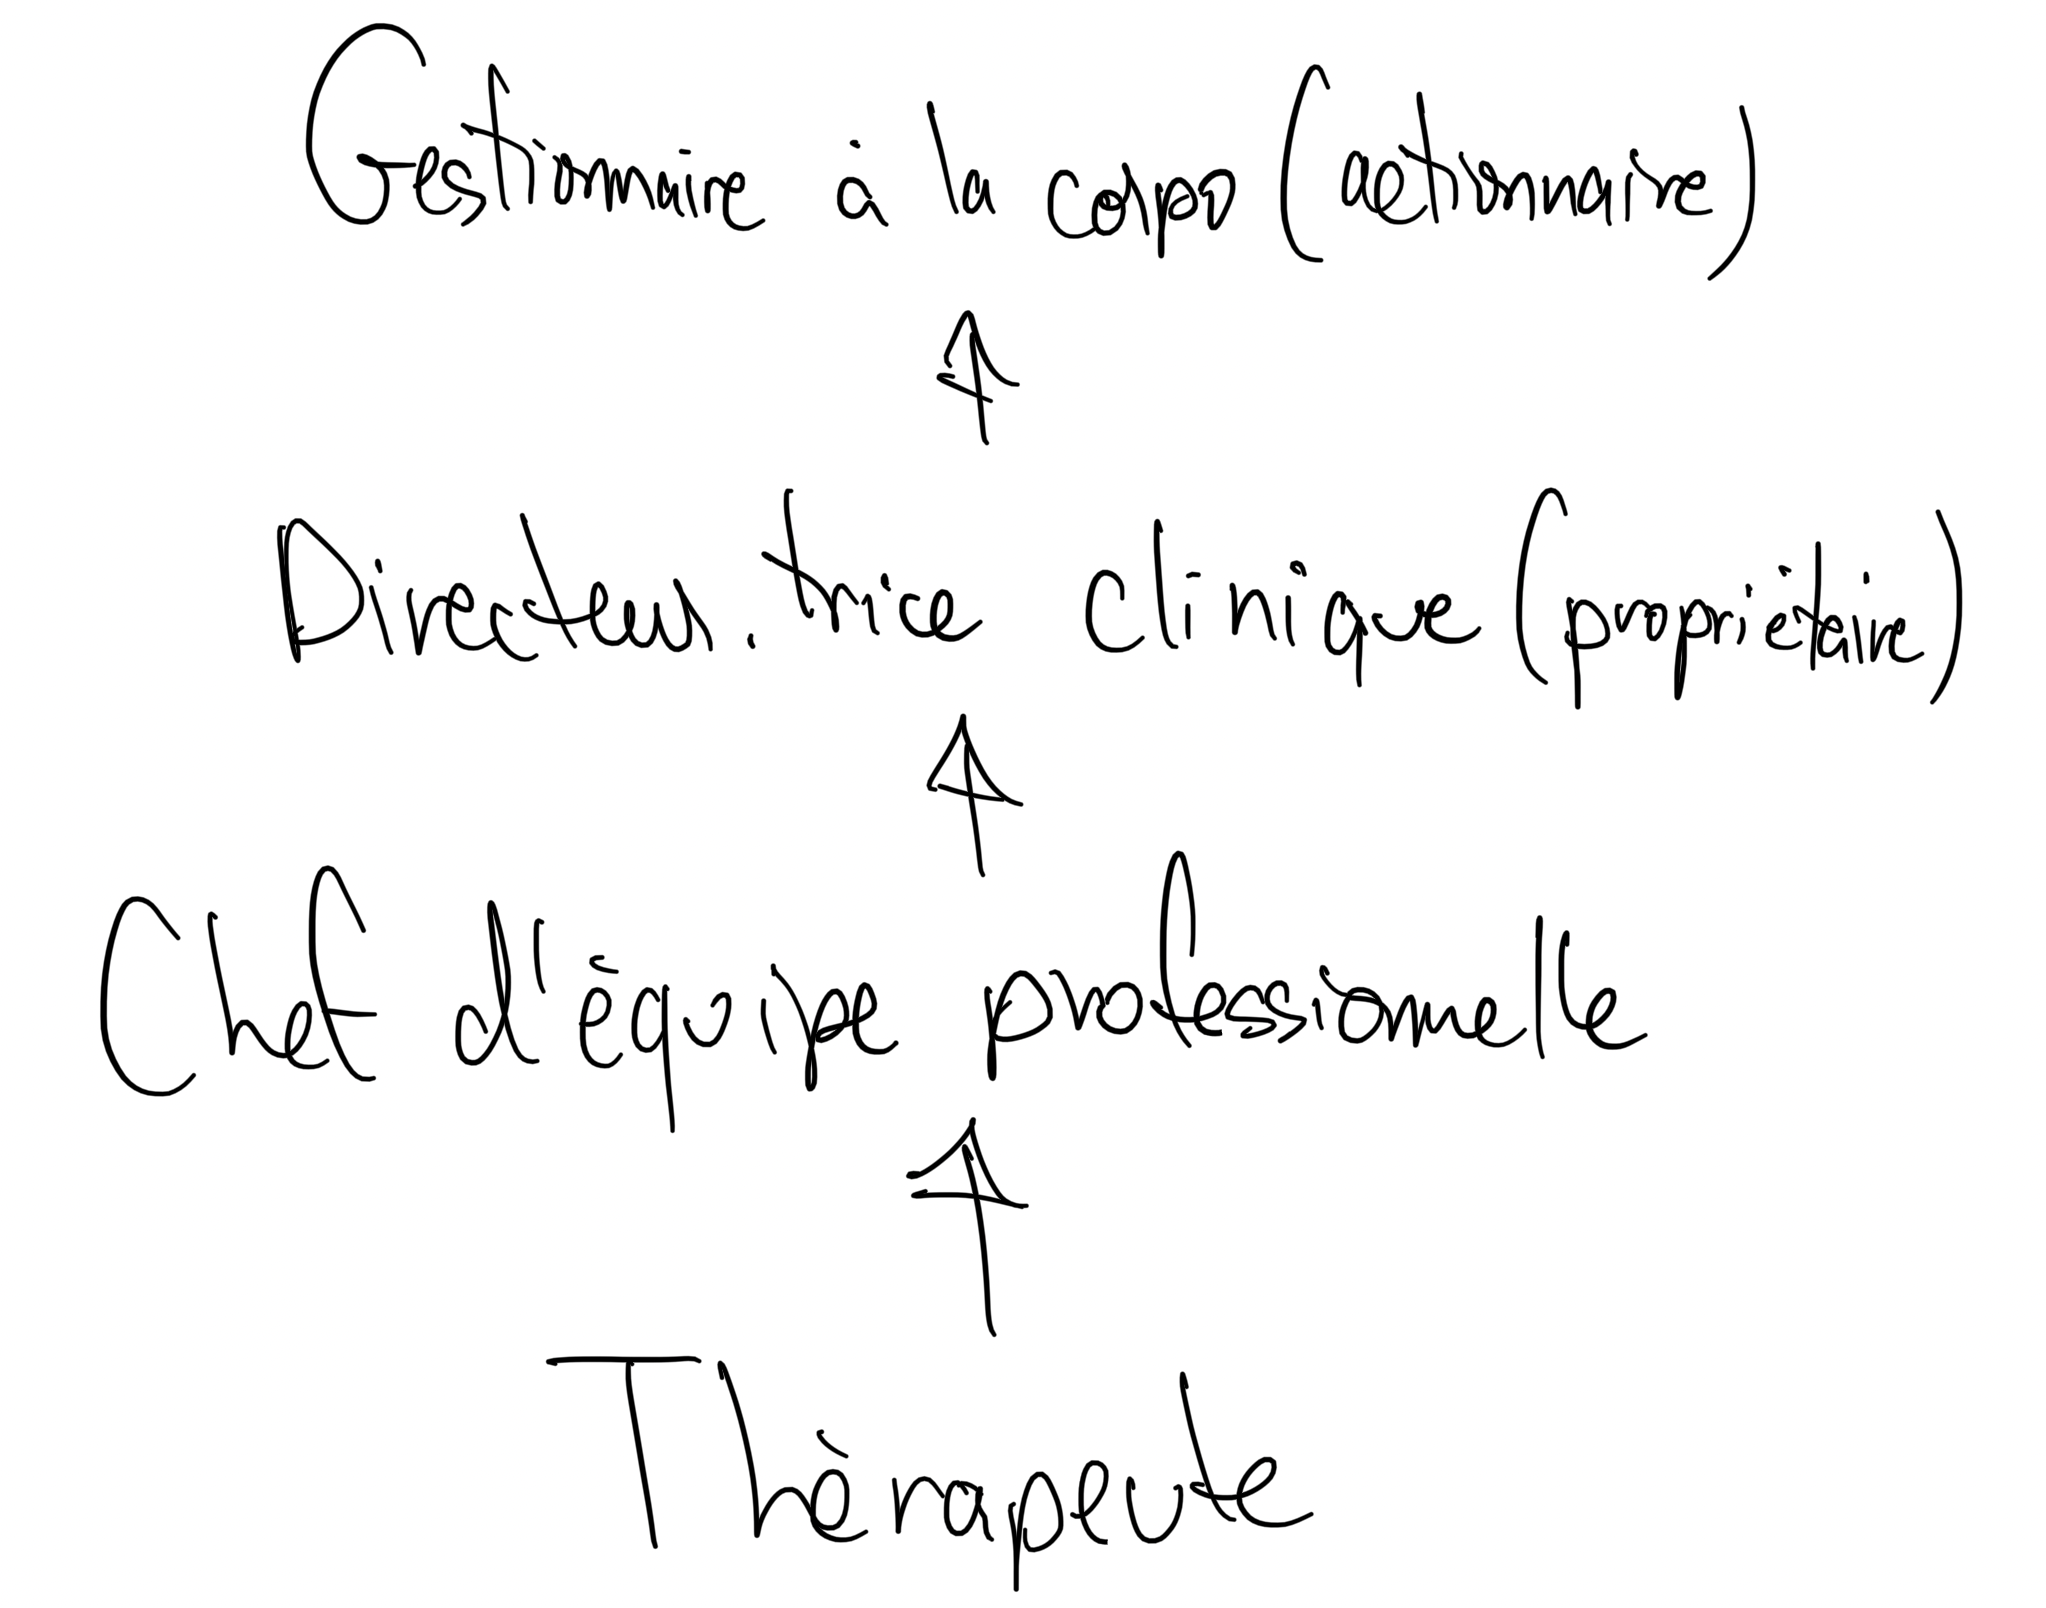 Gestionnaire à la corpo (actionnaire)
Directeur.trice clinique (propriétaire)
Chef d'équipe professionnelle
Thérapeute